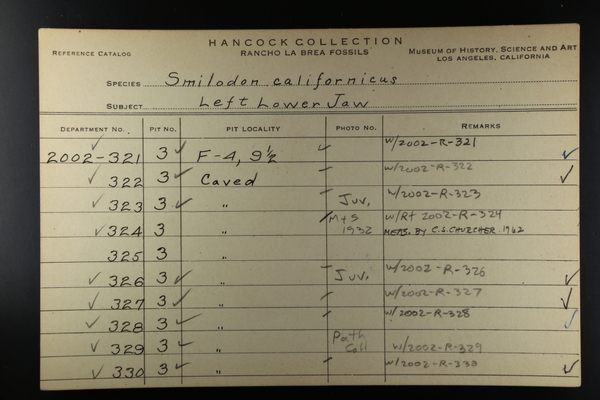 HANCOCK COLLECTION
REFERENCE CATALOG RANCHO LA BREA FOSSILS MUSEUM OF HISTORY, SCIENCE AND ART
LOS ANGELES, CALIFORNIA
SPECIES Smilodon californicus
SUBJECT Left Lower Jaw
DEPARTMENT NO. PIT NO. PIT LOCALITY PHOTO NO. REMARKS
2002-321 3 ✓ F-4, 9½ w/2002-R-321 ✓
✓ 322 3 ✓ Caved w/2002-R-322 ✓
✓ 323 3 ✓ " Juv. w/2002-R-323
✓ 324 3 " M+S 1932 w/Rt 2002-R-324
MEAS. BY C.S. CHURCHER 1962
325 3 "
✓ 326 3 ✓ " Juv. w/2002-R-326 ✓
✓ 327 3 ✓ " w/2002-R-327 ✓
✓ 328 3 ✓ " w/2002-R-328 ✓
✓ 329 3 ✓ " Path Coll w/2002-R-329
✓ 330 3 ✓ " w/2002-R-330 ✓